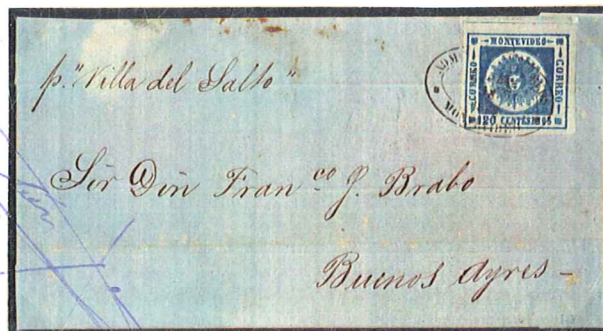 MONTEVIDEO
CORREO
CORREO
120 CENTESIMOS
p. "Villa del Salto"
Sor Don Fran.co J. Brabo
Buenos Ayres -